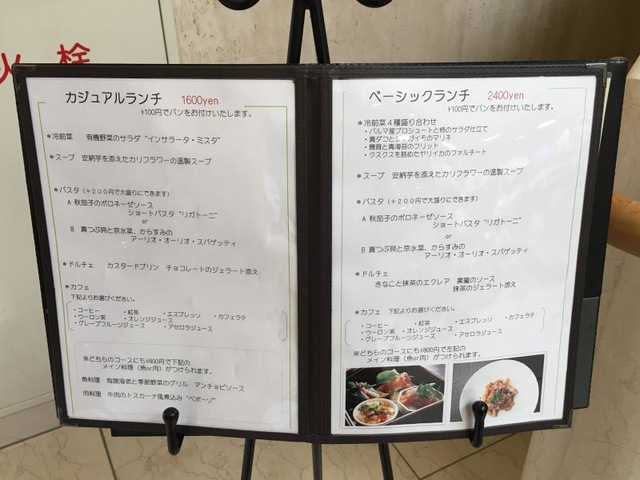 火 栓
カジュアルランチ 1600yen
+100円でパンをお付けいたします。
*冷前菜 有機野菜のサラダ "インサラータ・ミスタ"
*スープ 安納芋を添えたカリフラワーの温製スープ
*パスタ (+200円で大盛りにできます)
A 秋茄子のボロネーゼソース
ショートパスタ "リガトーニ"
or
B 真つぶ貝と京水菜、からすみの
アーリオ・オーリオ・スパゲッティ
*ドルチェ カスタードプリン チョコレートのジェラート添え
*カフェ
下記よりお選びください。
・コーヒー ・紅茶 ・エスプレッソ ・カフェラテ
・ウーロン茶 ・オレンジジュース
・グレープフルーツジュース ・アセロラジュース
※どちらのコースにも+800円で下記の
メイン料理(魚or肉)がつけられます。
魚料理 有頭海老と季節野菜のグリル アンチョビソース
肉料理 牛肉のトスカーナ風煮込み "ペポーゾ"
ベーシックランチ 2400yen
+100円でパンをお付けいたします。
*冷前菜4種盛り合わせ
・パルマ産プロシュートと柿のサラダ仕立て
・真ダコとジャガイモのマリネ
・舞茸と青海苔のフリット
・クスクスを詰めたヤリイカのファルチート
*スープ 安納芋を添えたカリフラワーの温製スープ
*パスタ (+200円で大盛りにできます)
A 秋茄子のボロネーゼソース
ショートパスタ "リガトーニ"
or
B 真つぶ貝と京水菜、からすみの
アーリオ・オーリオ・スパゲッティ
*ドルチェ
きなこと抹茶のエクレア 黒蜜のソース
抹茶のジェラート添え
*カフェ 下記よりお選びください。
・コーヒー ・紅茶 ・エスプレッソ ・カフェラテ
・ウーロン茶 ・オレンジジュース
・グレープフルーツジュース ・アセロラジュース
※どちらのコースにも+800円で左記の
メイン料理(魚or肉)がつけられます。